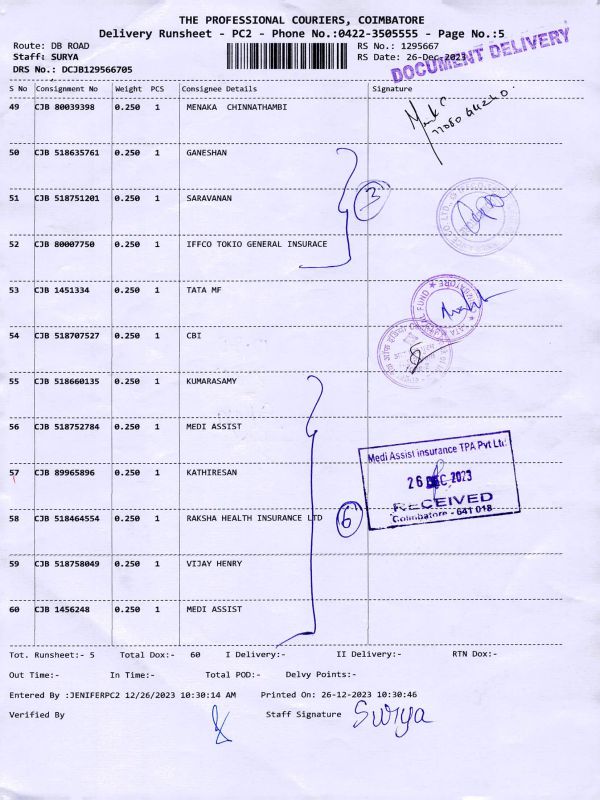 THE PROFESSIONAL COURIERS, COIMBATORE
Delivery Runsheet - PC2 - Phone No.:0422-3505555 - Page No.:5
Route: DB ROAD RS No.: 1295667
Staff: SURYA RS Date: 26-Dec-2023
DRS No.: DCJB129566705
DOCUMENT DELIVERY
S No Consignment No Weight PCS Consignee Details Signature
49 CJB 80039398 0.250 1 MENAKA CHINNATHAMBI
50 CJB 518635761 0.250 1 GANESHAN
3
51 CJB 518751201 0.250 1 SARAVANAN
52 CJB 80007750 0.250 1 IFFCO TOKIO GENERAL INSURACE
53 CJB 1451334 0.250 1 TATA MF
TATA MUTUAL FUND
COIMBATORE
54 CJB 518707527 0.250 1 CBI
55 CJB 518660135 0.250 1 KUMARASAMY
56 CJB 518752784 0.250 1 MEDI ASSIST
Medi Assist insurance TPA Pvt Ltd
26 DEC 2023
RECEIVED
Coimbatore - 641 018
57 CJB 89965896 0.250 1 KATHIRESAN
58 CJB 518464554 0.250 1 RAKSHA HEALTH INSURANCE LTD
6
59 CJB 518758049 0.250 1 VIJAY HENRY
60 CJB 1456248 0.250 1 MEDI ASSIST
Tot. Runsheet:- 5 Total Dox:- 60 I Delivery:- II Delivery:- RTN Dox:-
Out Time:- In Time:- Total POD:- Delvy Points:-
Entered By :JENIFERPC2 12/26/2023 10:30:14 AM Printed On: 26-12-2023 10:30:46
Verified By Staff Signature Surya